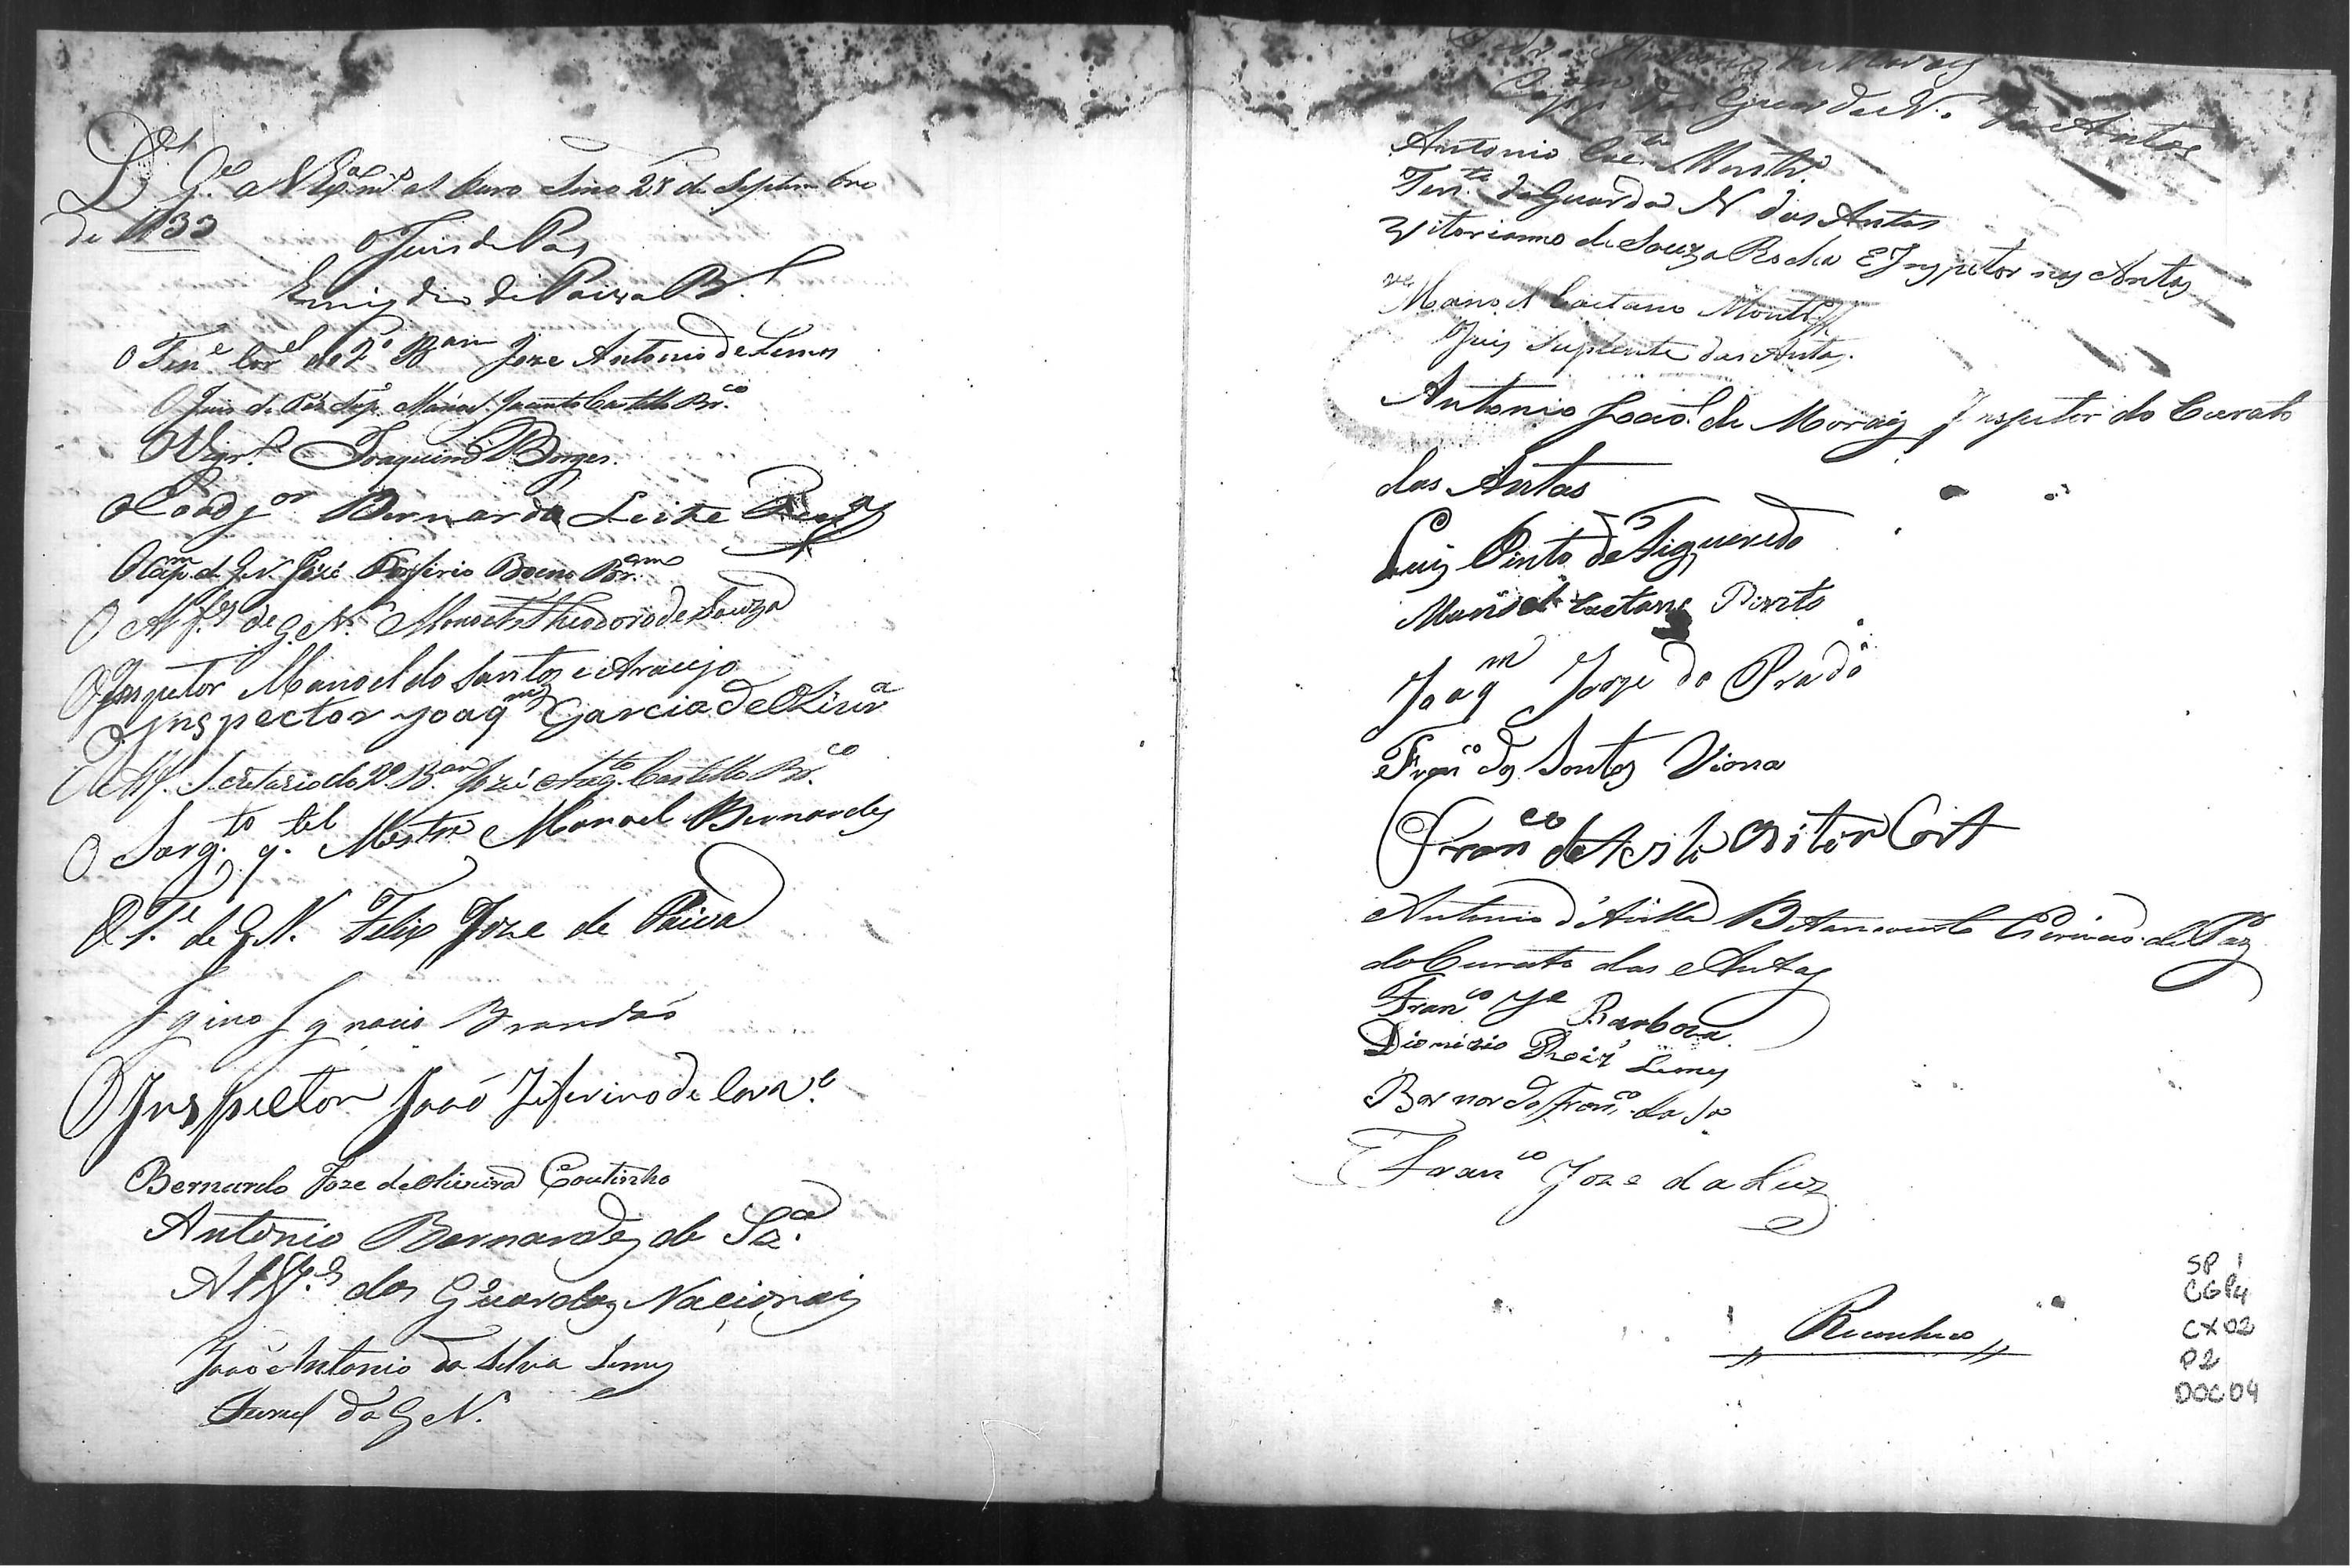 D.s G.e a V Ex.a m.s a.s Ouro Fino 28 de Septembro
de 1833
O Juis de Pas
Emigdio de Paiva B.
O Ten.e Cor.el do 2.o B.am Joze Antonio de Lemos
O Juis de Páz Sup. Manoel Jacinto Castello Br.co
O Vigr.o Joaquim Borges
O Coadj.or Bernardo Leite
O Cap.m de G.N. José Porfirio Bueno
O Alf.es de G.N. Manoel Theodoro de Souza
O Inspetor Manoel do Santos e Araujo
O Inspector Joaq.m Garcia de Olivr.a
O Alf. Secretario do 2.o B.am José Aug.to Castello Br.co
O Sarg.to q.tel Mestre Manoel Bernardes
O T.e de G.N. Felix Joze de Paiva
Igino Ignacio Brandão
O Inspector João Zeferino de
Bernardo Joze de Oliveira Coutinho
Antonio Bernardes de Sz.a
Alf.es das Guardas Nacionais
João Antonio da Silva Lemes
da G.N.
Antonio de Morais
Cap.m das Guarda N. das Antas
Antonio
Ten.te da Guarda N das Antas
Vitorianno de Souza Rocha E Inspetor nas Antas
Manoel Caetano Montr.o
Juis Suplente das Antas.
Antonio João de Morais Inspetor do Curato
das Antas
Luis Pinto de Figueredo
Manoel Caetano Pinto
Joaq.m Jorge do Prado
Fran.co dos Santos Viana
Fran.co de
Antonio d'Avilla Bitancourte Escrivão de Paz
do Curato das Antas
Fran.co Barboza
Dionizio Roiz Lemes
Bernardo Fran.co da S.a
Fran.co Joze da Luz
Reconheco
SP 1
CGP4
CX 02
P2
DOC 04